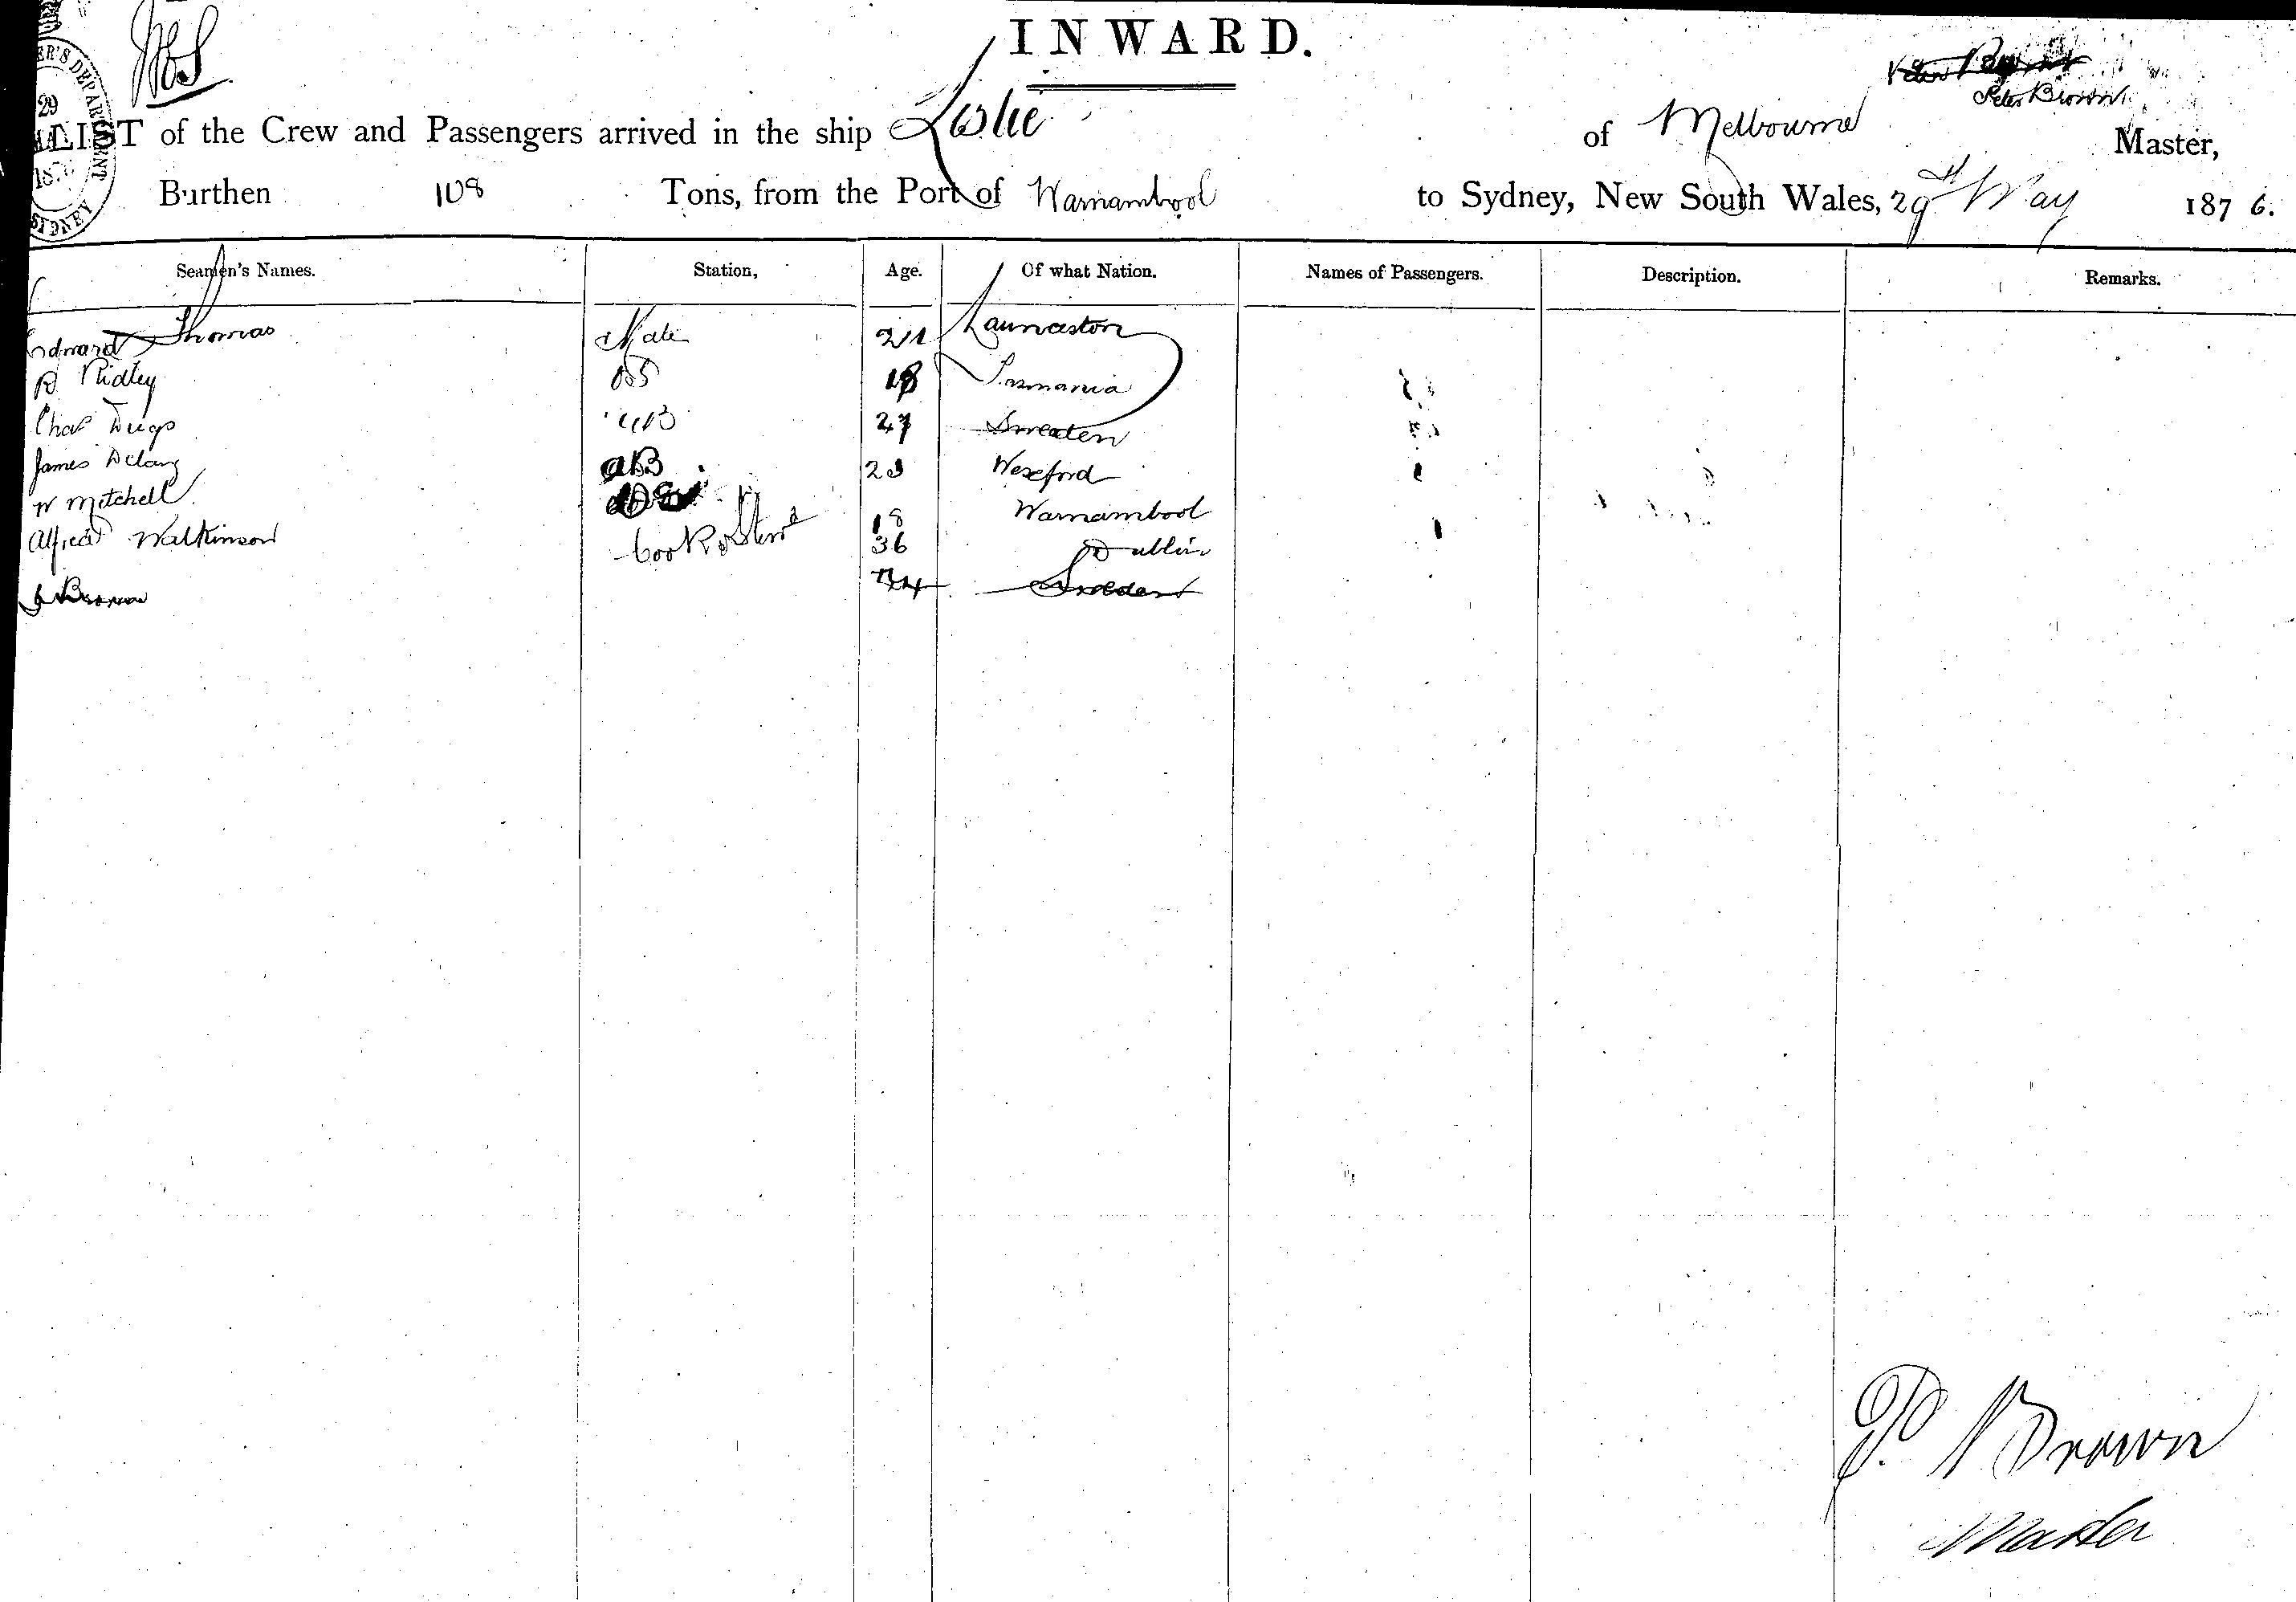 INWARD.
Peter Brown
LIST of the Crew and Passengers arrived in the ship Leslie of Melbourne Master,
Burthen 108 Tons, from the Port of Warnambool to Sydney, New South Wales, 29th May 1876.
Seamen's Names. Station, Age. Of what Nation. Names of Passengers. Description. Remarks.
Edward Thomas Mate 21 Launceston
Ridley OS 18 Tasmania
Chas AB 27 Sweaten
James Delany AB 23 Wexford
W Mitchell 18 Warnambool
Alfred Walkinson Cook & Stewd 36 Dublin
Brown 34 Sweden
P. Brown
Master
29
SYDNEY